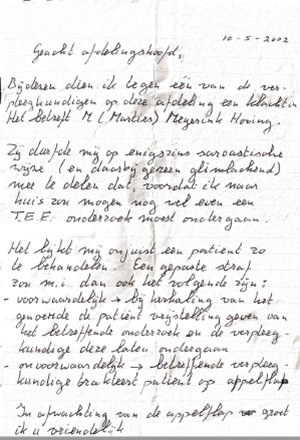 10-5-2002
Geacht afdelingshoofd,
Bijderen dien ik tegen één van de ver-
pleegkundigen op deze afdeling een klacht in
Het betreft M (Marlies) Meyerink Hoving.
Zij durfde mij op enigszins sarcastische
wijze (en daarbij gezeen glimlachend)
mee te delen dat, voordat ik naar
huis zou mogen nog wel even een
T.E.E. onderzoek moest ondergaan.
Het lijkt mij onjuist een patient zo
te behandelen. Een gepaste straf
zou m.i. dan ook het volgende zijn:
- voorwaardelijk → bij herhaling van het
genoemde de patiënt vrijstelling geven van
het betreffende onderzoek en de verpleeg-
kundige deze laten ondergaan
- onvoorwaardelijk → betreffende verpleeg-
kundige trakteert patient op appelflap
In afwachting van de appelflap groet
ik u vriendelijk